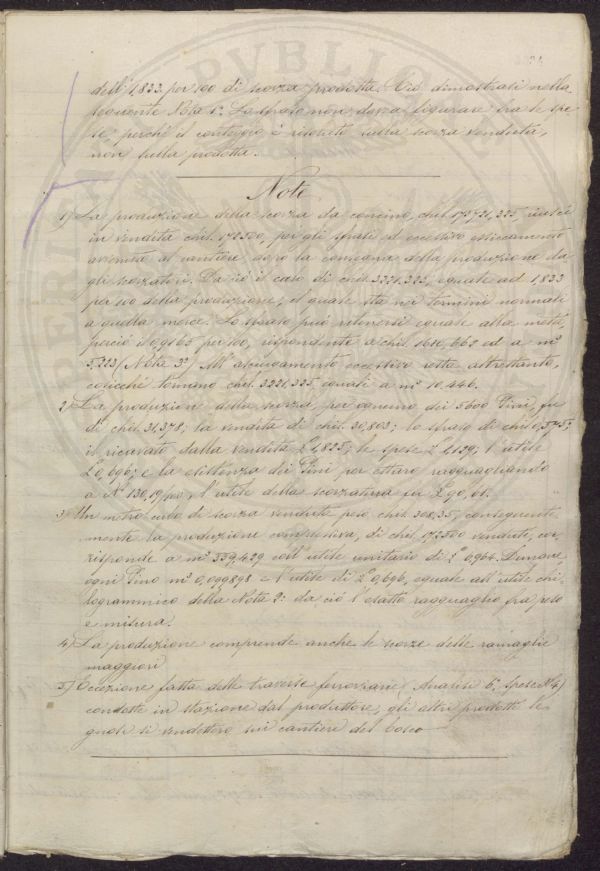 dell' 1,833 per 100 di scorza prodotta. Ciò dimostrasi nella
seguente Nota 1ª. Lo sfrato non dovea figurare fra le spe-
se, perchè il conteggio è riescito sulla scorza venduta,
non sulla prodotta.
Note
1) La produzione della scorza da concino, chil. 175721,325 riuscì
in vendita chil. 172500, per gli sfrati ed eccessivo essiccamento
avvenuto al cantiere dopo la consegna della produzione da
gli scorzatori. Da ciò il caso di chil. 3221,325, eguale ad 1,833
per 100 della produzione, il quale sta nei termini normali
a quella merce. Lo sfrato può ritenersi eguale alla metà,
perciò a 0,9165 per 100, rispondente a chil. 1610,662 ed a mc
5,223 (Nota 3ª). All' asciugamento eccessivo sotta altrettanto,
cosicchè tornano chil. 3221,325 eguali a mc 10.446.
2) La produzione della scorza, per ognuno dei 5600 Pini, fu
di chil. 31,378; la vendita di chil. 30,803; lo sfrato di chil. 0,575;
il ricavato dalla vendita £ 1,825; le spese £ 1,129; l' utile
£ 0,696; e la esistenza dei Pini per ettaro ragguagliando
a N° 130,19 l'utile della scorzatura fu £ 90,61.
3) Un metro cubo di scorza venduta pesò chil. 308,35, conseguente
mente la produzione complessiva, di chil. 172500 venduta, cor-
risponde a mc 559,429 coll' utile unitario di £ 6,964. Dunque
ogni Pino mc 0,099898 = l' utile di £ 0,696, eguale all' utile chi-
logrammico della Nota 2ª: da ciò l' esatto ragguaglio fra peso
e misura.
4) La produzione comprende anche le scorze delle ramaglie
maggiori
5) Eccezione fatta delle traverse ferroviarie (Analisi 6ª, spese N 4)
condotte in stazione dal produttore, gli altri prodotti le-
gnosi si vendettero sui cantiere del bosco